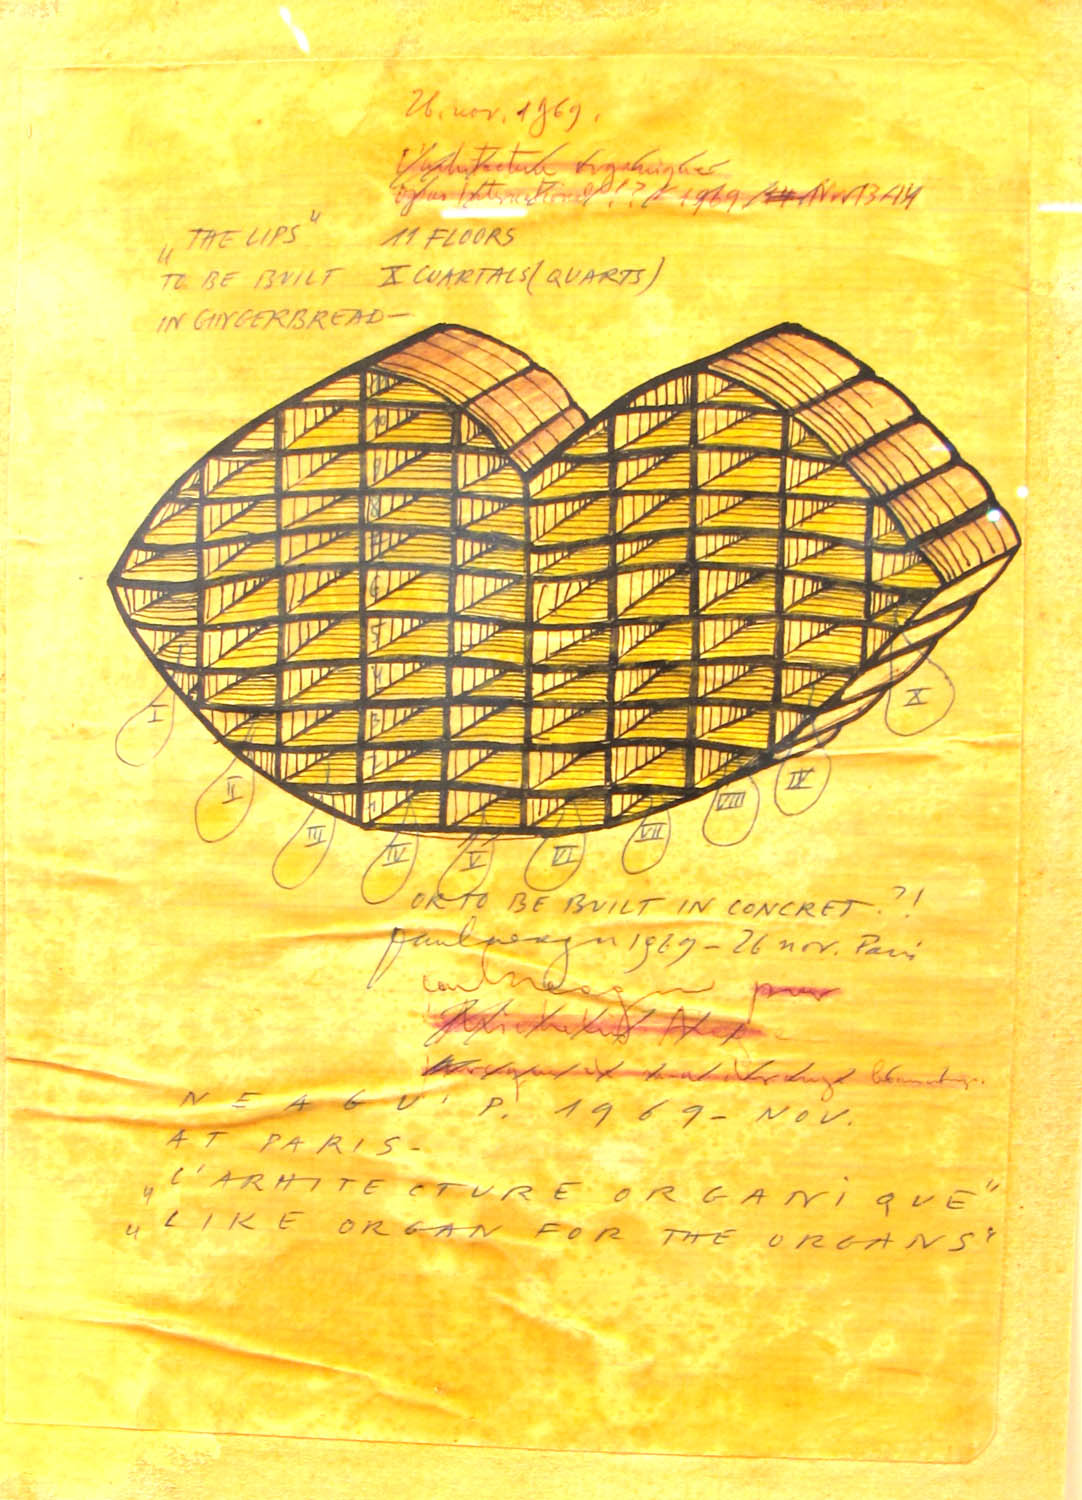 26. nov. 1969.
1969
„THE LIPS" 11 FLOORS
TO BE BUILT X CUARTALS (QUARTS)
IN GINGERBREAD—
10
9
8
6
5
4
3
2
1
I
II
III
IV
V
VI
VII
VIII
IV
X
OR TO BE BUILT IN CONCRET.?!
paul neagu 1969 – 26 nov. Paris
paul neagu pour
NEAGU' P. 1969 – NOV.
AT PARIS –
„L'ARHITECTURE ORGANIQUE"
„LIKE ORGAN FOR THE ORGANS"